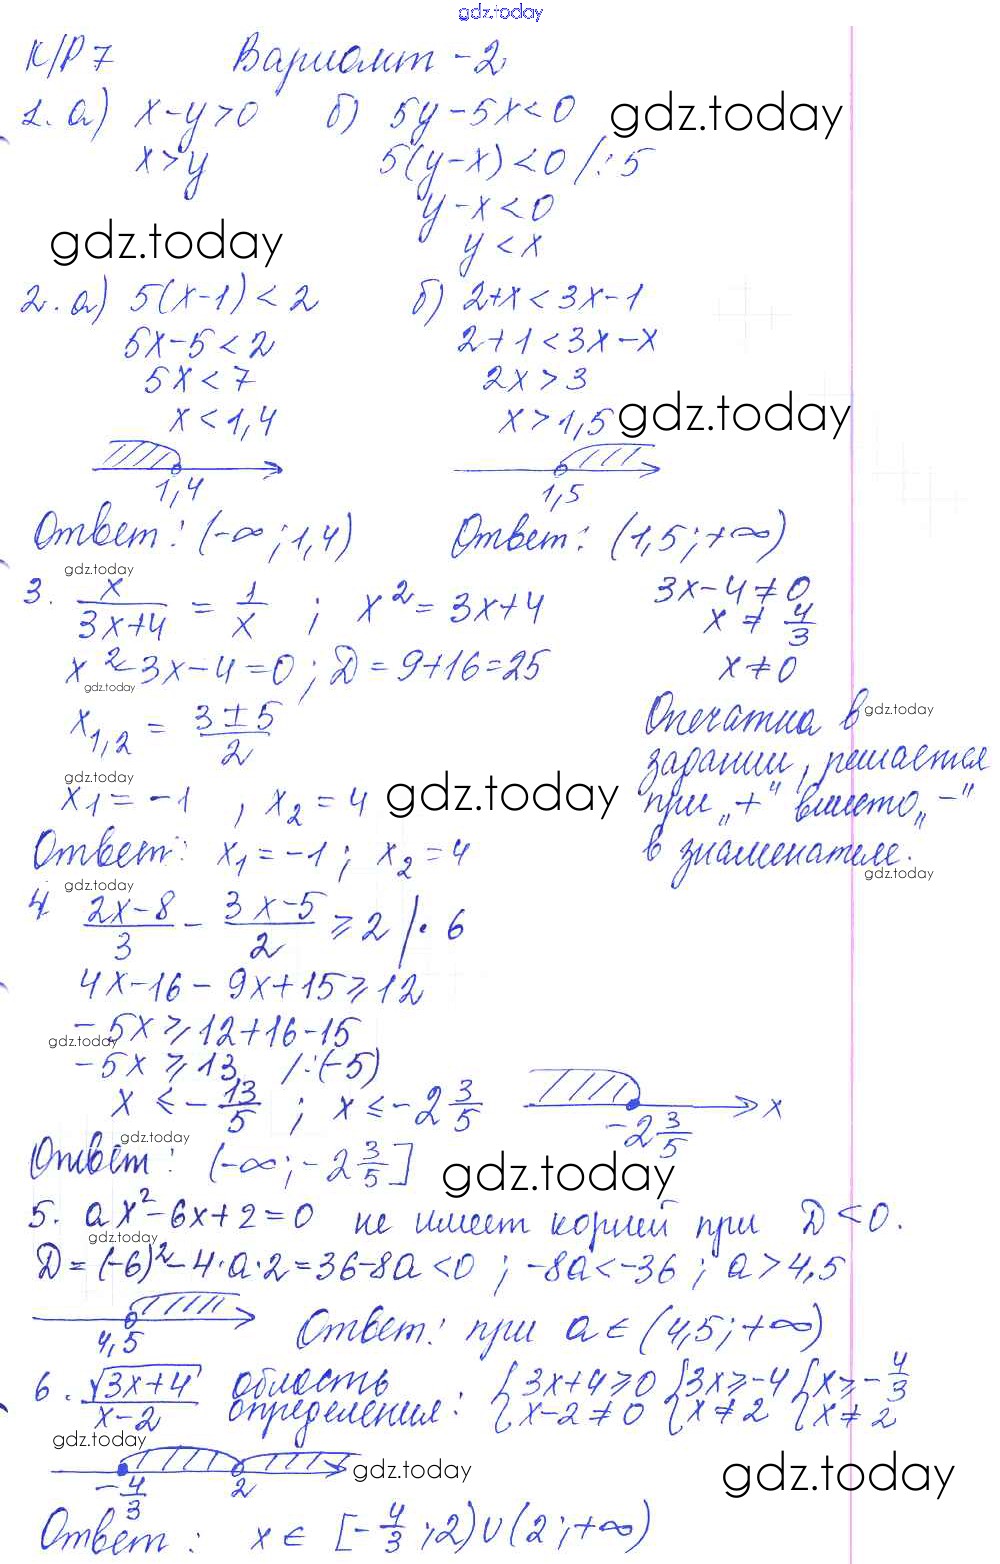 gdz.today
К/Р 7 Вариант - 2
1. а) x-y>0 б) 5y-5x<0 gdz.today
x>y 5(y-x)<0 /:5
y-x<0
gdz.today y<x
2. а) 5(x-1)<2 б) 2+x<3x-1
5x-5<2 2+1<3x-x
5x<7 2x>3
x<1,4 x>1,5 gdz.today
1,4 1,5
Ответ: (-∞; 1,4) Ответ: (1,5; +∞)
gdz.today
3. x/(3x+4) = 1/x ; x² = 3x+4 3x-4≠0
x ≠ 4/3
x²-3x-4=0; Д = 9+16=25 x≠0
gdz.today
x₁,₂ = (3±5)/2 Опечатка в gdz.today
задании, решается
gdz.today
x₁ = -1 , x₂ = 4 gdz.today при „+“ вместо „-“
Ответ: x₁=-1; x₂=4 в знаменателе.
gdz.today gdz.today
4 (2x-8)/3 - (3x-5)/2 ⩾ 2 /· 6
4x-16-9x+15⩾12
-5x⩾12+16-15
gdz.today
-5x⩾13 /:(-5)
x ⩽ -13/5 ; x⩽-2 3/5 x
-2 3/5
gdz.today
Ответ: (-∞; -2 3/5] gdz.today
5. ax²-6x+2=0 не имеет корней при Д<0.
gdz.today
Д=(-6)²-4·a·2=36-8a<0 ; -8a<-36 ; a>4,5
4,5 Ответ: при a∈(4,5; +∞)
6. √(3x+4)/(x-2) область определения: {3x+4⩾0 {3x⩾-4 {x⩾-4/3
{x-2≠0 {x≠2 {x≠2
gdz.today
gdz.today gdz.today
-4/3 2
Ответ: x∈ [-4/3; 2)∪(2; +∞)